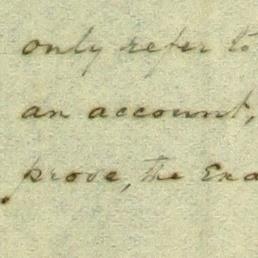 only refer to
an account,
prove, the Exa